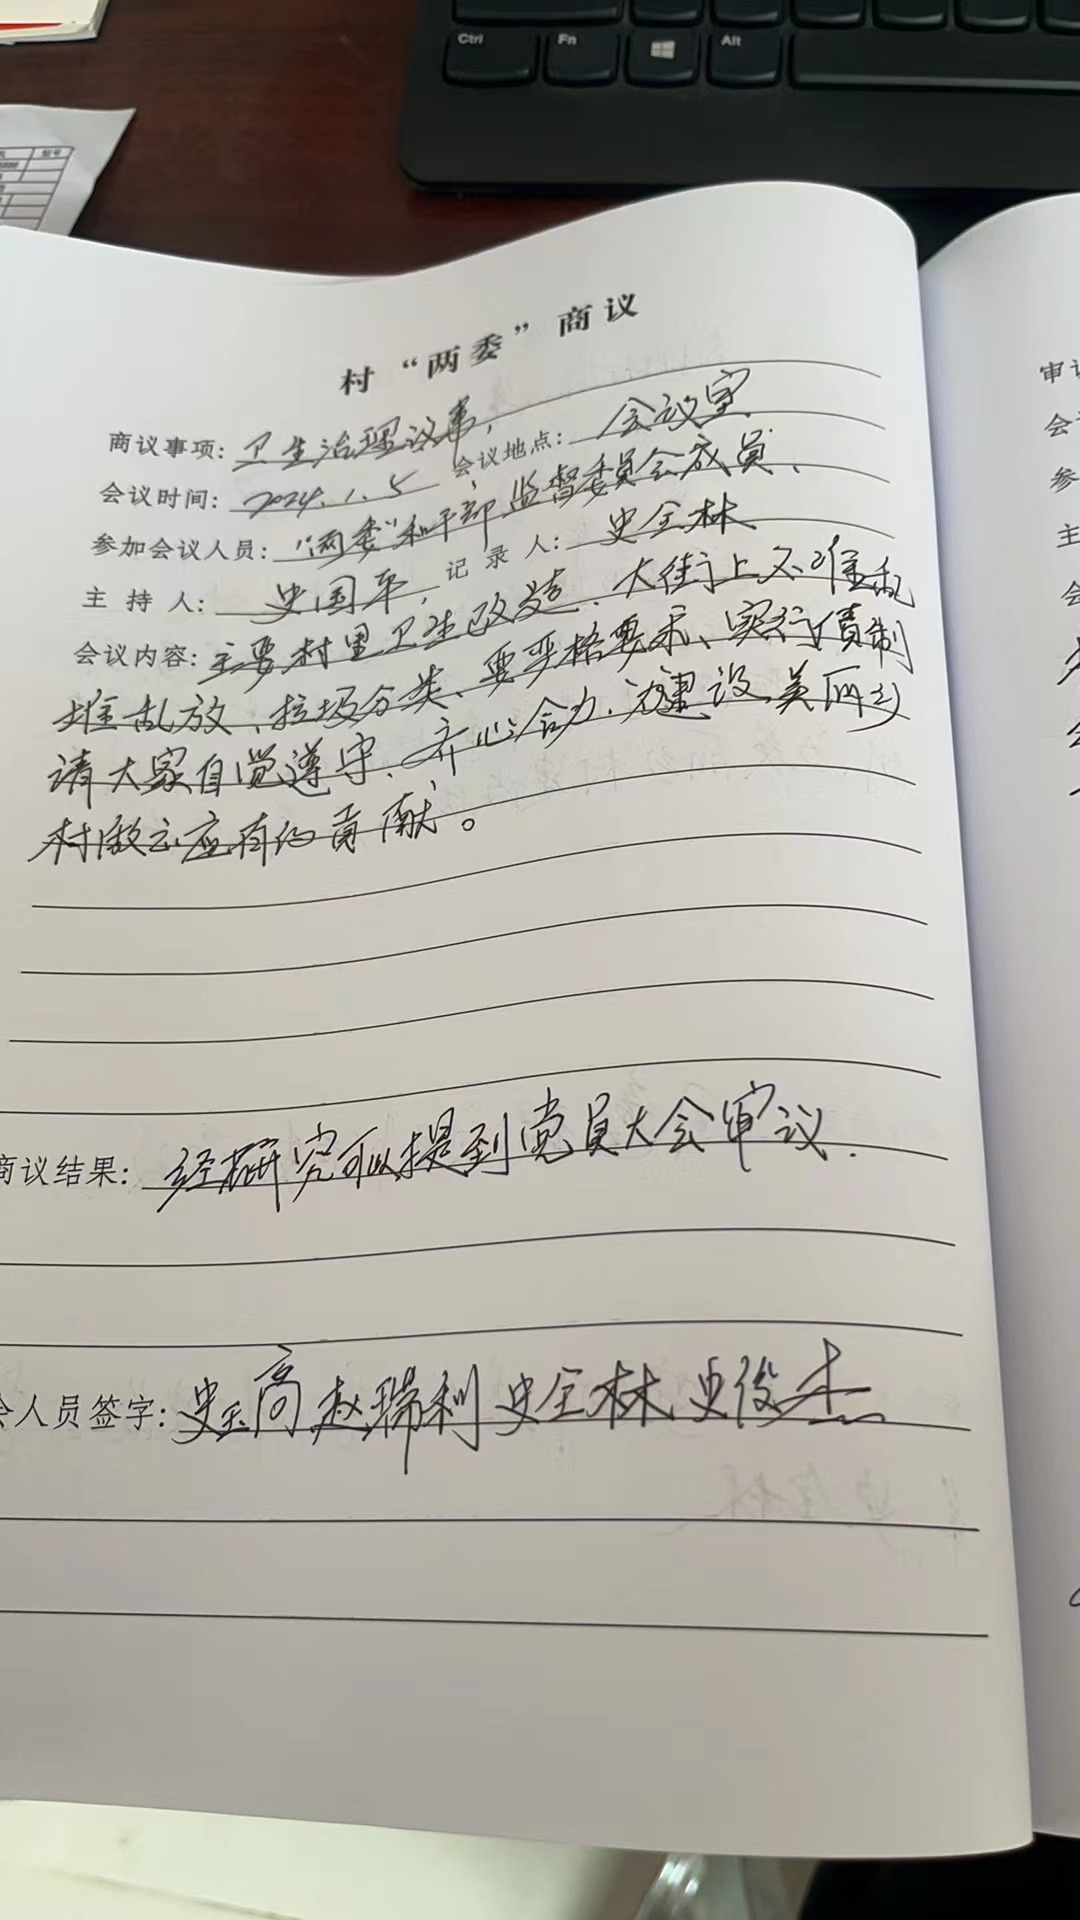 Ctrl Fn Alt
村“两委”商议
商议事项: 卫生治理议事,
会议时间: 2024.1.5 会议地点: 会议室.
参加会议人员: “两委”和干部, 监督委员会成员.
主持人: 史国平, 记录人: 史全林
会议内容: 主要村里卫生改造. 大街上不准乱
堆乱放、垃圾分类、要严格要求、实行责制
请大家自觉遵守、齐心合力、建设美丽乡
村做出应有的贡献。
商议结果: 经研究可以提到党员大会审议.
会人员签字: 史玉高 赵瑞利 史全林 史俊杰
审议
会
参
主
会